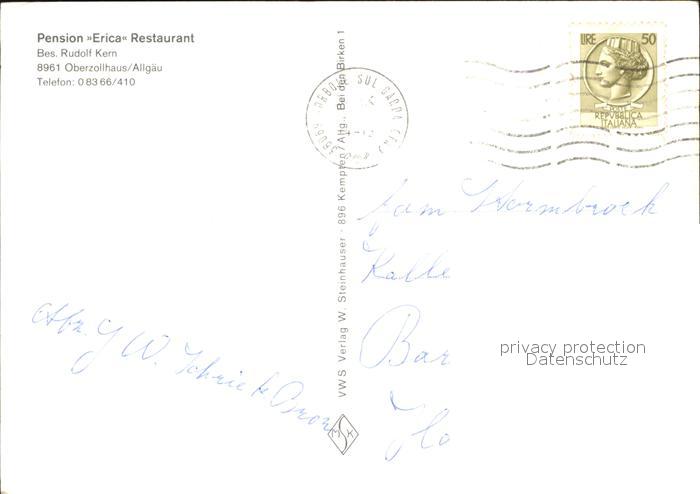 Pension »Erica« Restaurant
Bes. Rudolf Kern
8961 Oberzollhaus/Allgäu
Telefon: 0 83 66/410
VWS Verlag W. Steinhauser · 896 Kempten / Allg., Bei den Birken 1
SUL GARDA
LIRE 50
POSTE
REPVBBLICA
ITALIANA
Fam. Wormbrock
Kalle
Bar
Ho
Abz. W.
privacy protection
Datenschutz